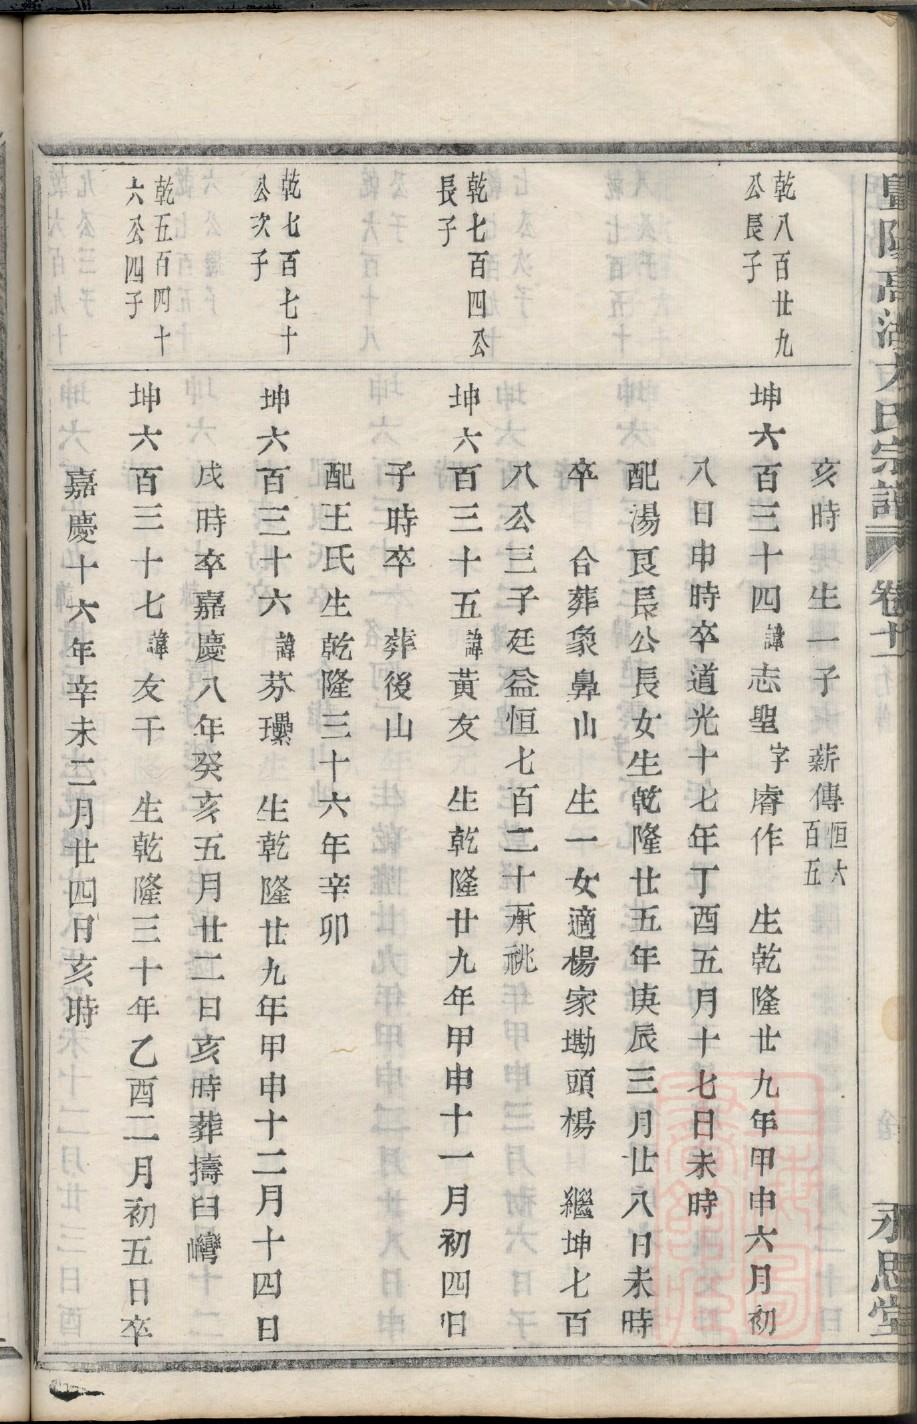 暨陽高湖方氏宗譜 卷十 永思堂
亥時生一子 薪傳恒六百五
乾八百廿九公長子
坤六百三十四諱志聖字睿作 生乾隆廿九年甲申六月初
八日申時卒道光十七年丁酉五月十七日未時
配湯艮長公長女生乾隆廿五年庚辰三月廿八日未時
卒 合葬象鼻山 生一女適楊家塢頭楊 繼坤七百
八公三子廷益恒七百二十承祧
乾七百四公長子
坤六百三十五諱黃友 生乾隆廿九年甲申十一月初四日
子時卒 葬後山
配王氏生乾隆三十六年辛卯
乾七百七十公次子
坤六百三十六諱芬 生乾隆廿九年甲申十二月十四日
戌時卒嘉慶八年癸亥五月廿二日亥時葬擣臼灣
乾五百四十六公四子
坤六百三十七諱友干 生乾隆三十年乙酉二月初五日卒
嘉慶十六年辛未二月廿四日亥時